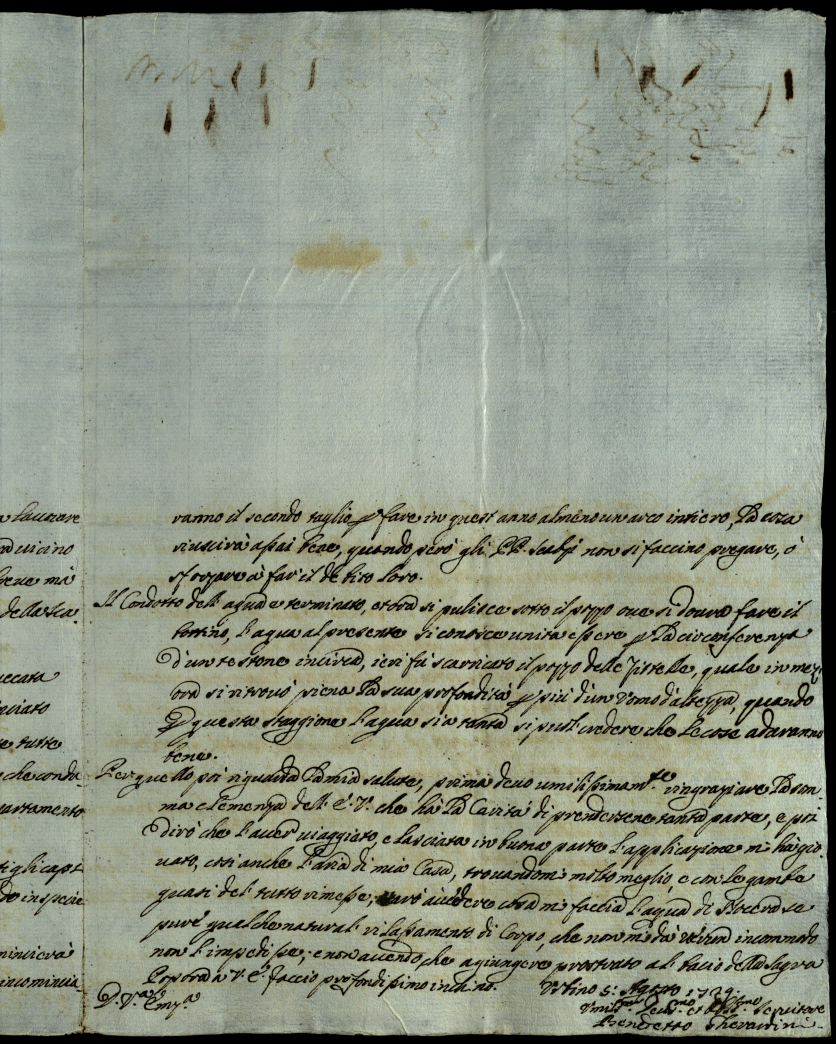 a lauorare
vicino
breue mà
della sca-
eccata
tutte
che condu-
partamento
gli capi
inspecie
mincierà
incomincia-
ranno il secondo taglio p fare in quest'anno almeno un arco intiero, La cosa
riuscirà assai bene, quando però gli PP. Scalzi non si faccino pregare, ò
sforzare à far il debito loro.
Il Condotto dell'aqua è terminato, et ora si pulisce sotto il pozzo oue si dourà fare il
bottino, l'aqua al presente si conosce unita essere p la circonferenza
d'un testone incirca, ieri fù scarricato il pozzo delle Zittelle, quale in mezz
ora si ritrouò piena la sua profondità p più d'un Vomo d'altezza, quando
p questa staggione l'aqua sia tanta si può credere che le cose adaranno
bene.
Per quello poi riguarda la mia salute, prima deuo umilissimam.te ringraziare la som-
ma clemenza dell'E.V. che hà la Carità di prendersene tanta parte, e poi
dirò che l'auer viaggiato, e lasciata in buona parte l'applicazione m'hà gio-
uato, così anche l'aria di mia Casa, trouandomi molto meglio, e con le gambe
quasi del tutto rimesse, starò à uedere cosa mi faccia l'aqua di Nocera se
pure qualche natural rilassamento di Corpo, che non mi dà verun incommodo
non l'impedisse; e non auendo che agiungere prostrato al bacio della Sagra
Porpora a V.E. faccio profondissimo inchino.
Vrbino 5: Agosto 1729.
D. V.ra Em.za
Vmil.mo Deu.mo et Obl.mo Seruitore
Benedetto